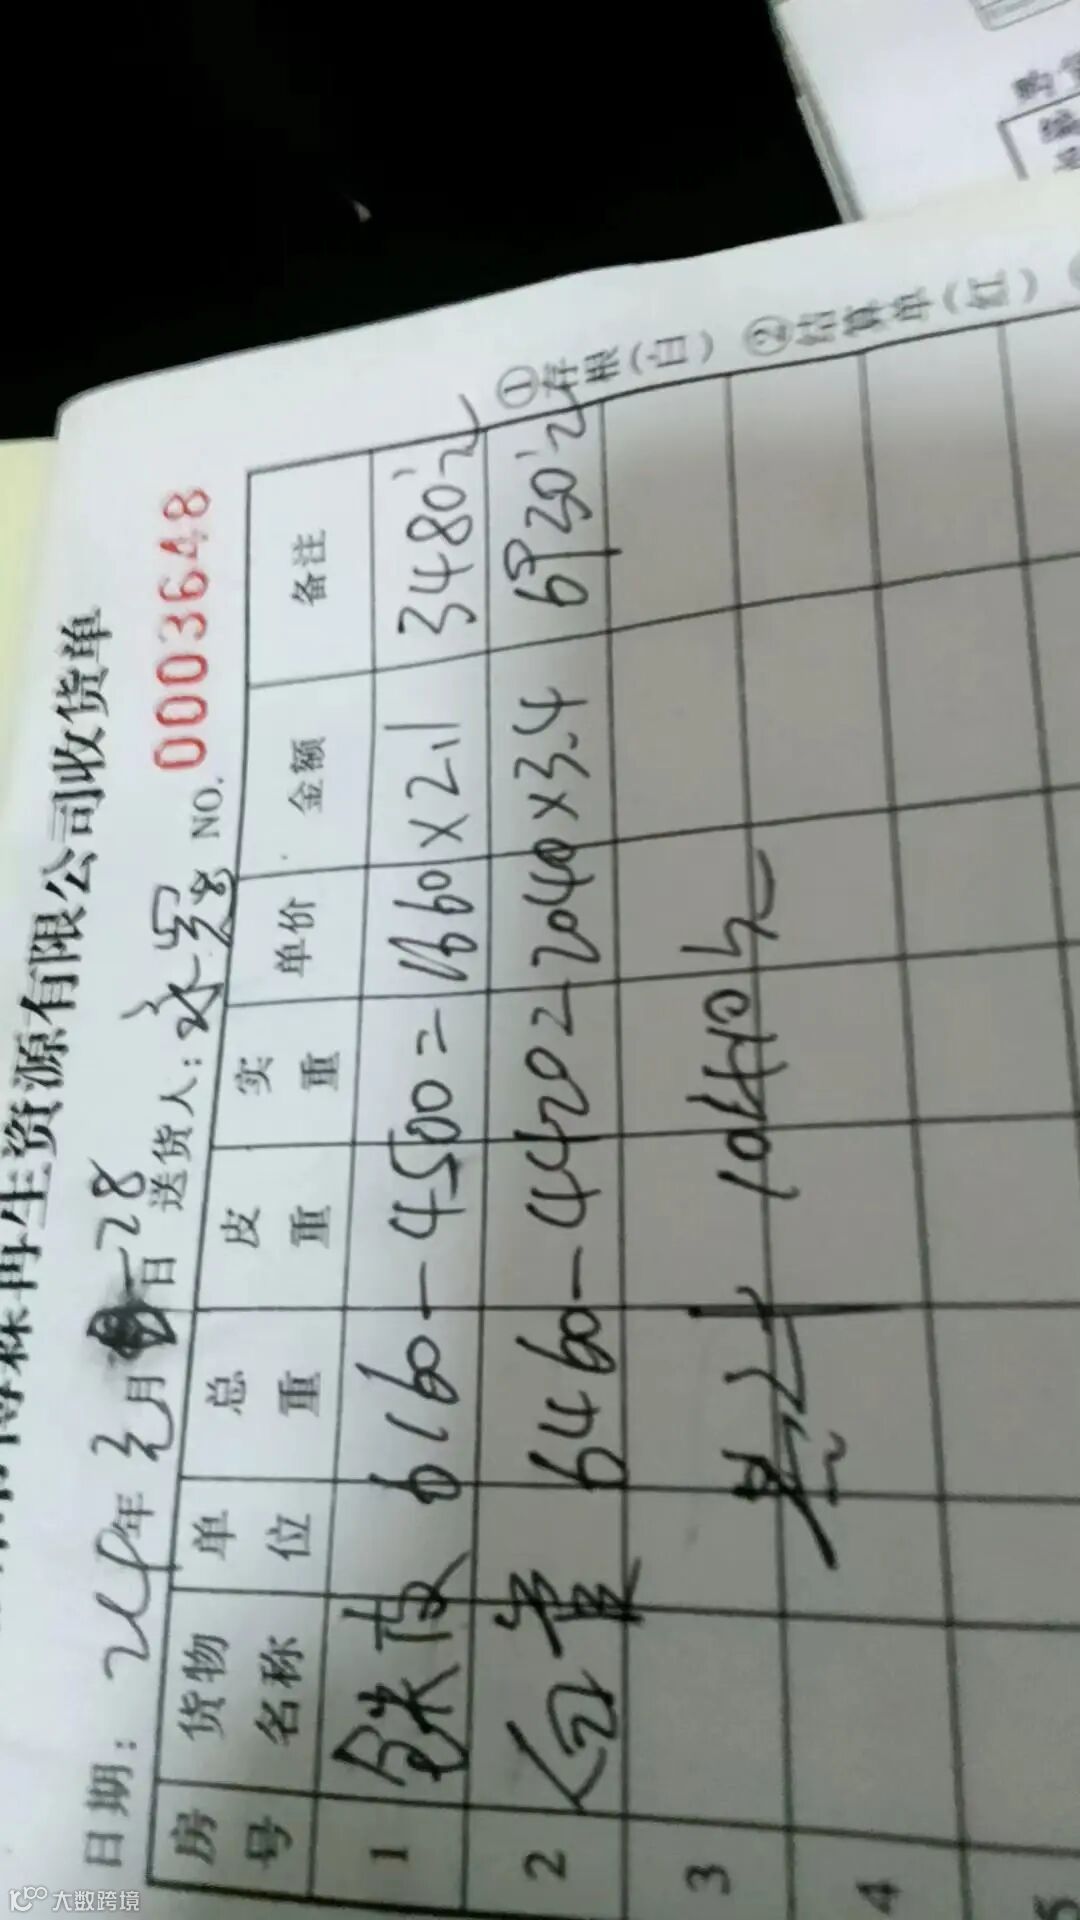 再生资源有限公司收货单
日期: 24年元月28日 送货人: NO. 0003648
房号 货物名称 单位 总重 皮重 实重 单价 金额 备注
1 铁皮 6160-4500=1660×2.1 3480元
2 6460-4420=2040×3.4 6930元
3 共计 10410元
4
5
①存根(白) ②结算单(红)
大数跨境